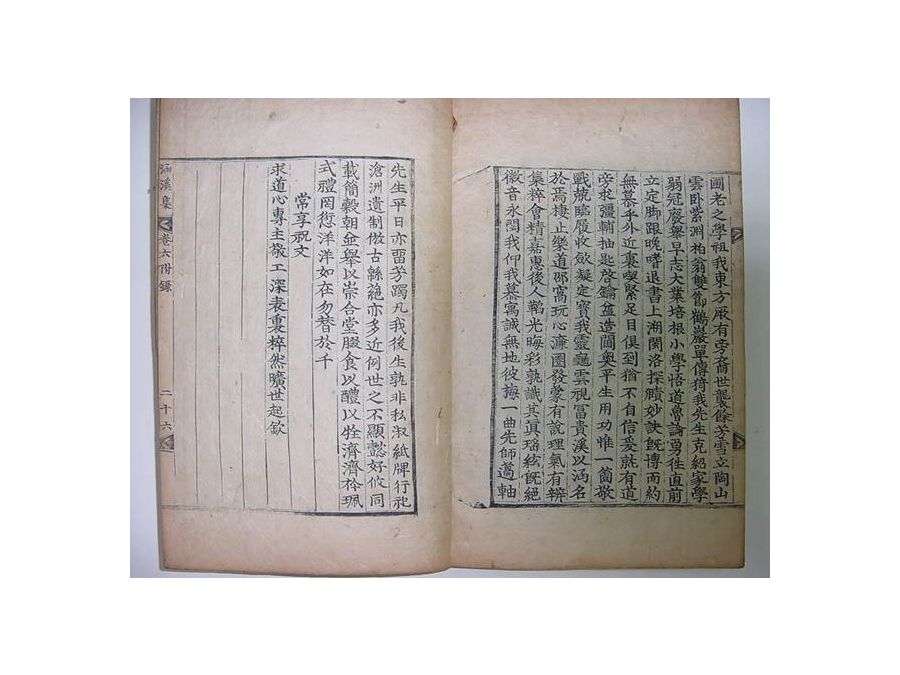 國老之學祖我東方厥有旁裔世襲餘芳雪立陶山
雲卧紫淵柏翁雙節鶴巖單傳猗我先生克紹家學
弱冠廢擧早志大業培根小學悟道魯論勇徃直前
立定脚跟晩嗜退書上溯閩洛探賾妙訣旣博而約
無慕乎外近裏喫緊足目俱到猶不自信爰就有道
旁求彊輔抽匙啓鑰益造閫奧平生用功惟一箇敬
戰兢臨履收斂凝定寶我靈龜雲視冨貴溪以潏名
於焉棲止樂道邵窩玩心濂圖發蒙有說理氣有辨
集粹會精嘉惠後人韜光晦彩孰識其眞瑶絃旣絕
徽音永閟我仰我慕寓誠無地彼晦一曲先師薖軸
先生平日亦留芳躅凡我後生孰非私淑紙牌行祀
滄洲遺制倣古緜蕝亦多近例世之不顯懿好攸同
載簡糓朝僉舉以崇合堂腏食以醴以牲濟濟衿珮
式禮罔愆洋洋如在勿替於千
常享祝文
求道心專主敬工深表裏粹然曠世起欽
溪集
卷六附錄
二十六